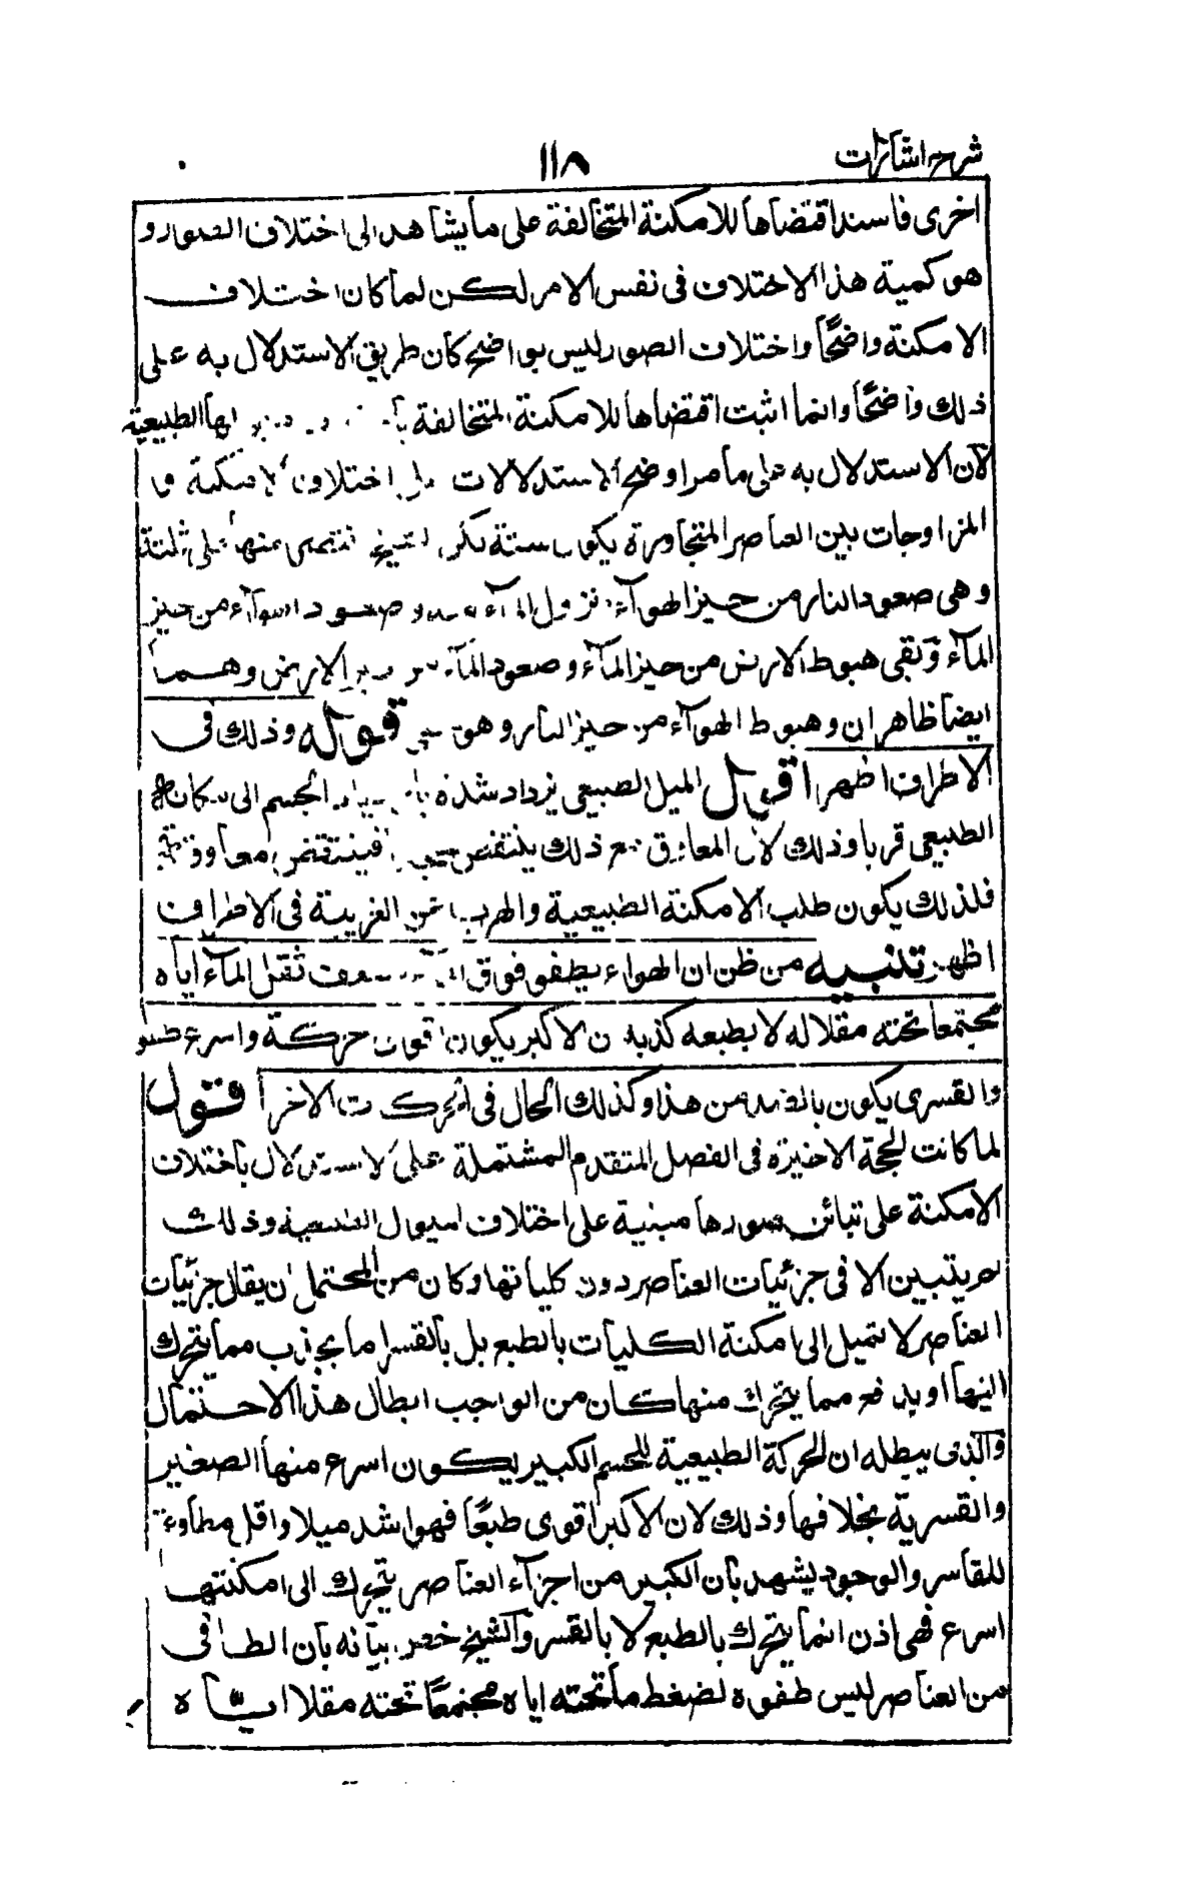 شرح اشارات
١١٨
اخرى فاسند اقتضاها للامكنة المتخالفة على ما يشاهد الى اختلاف الصور و
هو كمية هذا الاختلاف فى نفس الامر لكن لما كان اختلاف
الامكنة واضحًا واختلاف الصور ليس بواضح كان طريق الاستدلال به على
ذلك واضحًا وانما اثبت اقتضاها للامكنة المتخالفة الطبيعية
لان الاستدلال به على ما مر اوضح الاستدلالات اختلاف
المزاوجات بين العناصر المتجاورة يكون ستة لكن الشيخ منها على ثلثة
وهى صعود النار من حيز الهوآء نزول المآء و صعود الهوآء من حيز
المآء وبقى هبوط الارض من حيز المآء وصعود المآء الارض وهما
ايضا ظاهران وهبوط الهوآء من حيز النار وهو قوله وذلك فى
الاطراف اظهر اقول الميل الطبيعى يزداد شدة الجسم الى مكانه
الطبيعى قربا وذلك لان المعاوق مع ذلك ينتقص معاوقته
فلذلك يكون طلب الامكنة الطبيعية والهرب عن الغريبة فى الاطراف
اظهر تنبيه من ظن ان الهواء يطفو فوق ثقل المآء اياه
مجتمعا تحته مقلا له لا بطبعه كذبه ان الاكبر يكون اقوى حركة واسرع طفوا
والقسرى يكون بالضد من هذا وكذلك الحال فى الحركات الاخر اقول
لما كانت الحجة الاخيرة فى الفصل المتقدم المشتملة على الاستدلال باختلاف
الامكنة على تبائن صورها مبنية على اختلاف الميول الطبيعية وذلك
لم يتبين الا فى جزئيات العناصر دون كلياتها وكان من المحتمل ان يقال جزئيات
العناصر لا تميل الى امكنة الكليات بالطبع بل بالقسر اما بجذب مما يتحرك
اليها او بدفع مما يتحرك منها كان من الواجب ابطال هذا الاحتمال
والذى يبطله ان الحركة الطبيعية للجسم الكبير يكون اسرع منها الصغير
والقسرية بخلافها وذلك لان الاكبر اقوى طبعًا فهو اشد ميلا واقل مطاوعة
للقاسر والوجود يشهد بان الكبير من اجزآء العناصر يتحرك الى امكنتها
اسرع فهى اذن انما يتحرك بالطبع لا بالقسر والشيخ خص بيانه بان الطافى
من العناصر ليس طفوه لضغط ما تحته اياه مجتمعًا تحته مقلا اياه